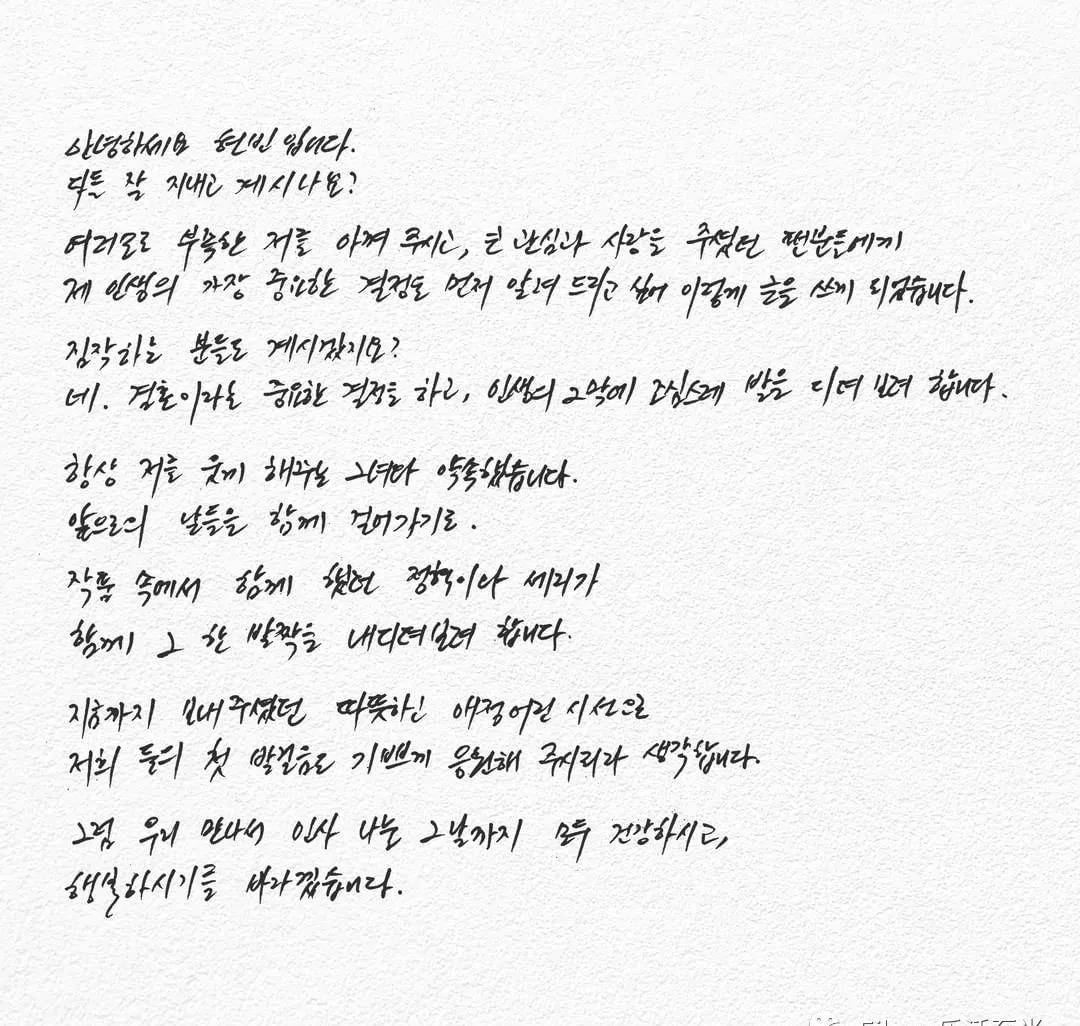 안녕하세요 현빈입니다.
다들 잘 지내고 계시나요?
여러모로 부족한 저를 아껴 주시고, 큰 관심과 사랑을 주셨던 팬분들에게
제 인생의 가장 중요한 결정을 먼저 알려 드리고 싶어 이렇게 글을 쓰게 되었습니다.
짐작하는 분들도 계시겠지요?
네. 결혼이라는 중요한 결정을 하고, 인생의 2막에 조심스레 발을 디뎌 보려 합니다.
항상 저를 웃게 해주는 그녀와 약속했습니다.
앞으로의 날들을 함께 걸어가기로.
작품 속에서 함께 했던 정혁이와 세리가
함께 그 한 발짝을 내디뎌보려 합니다.
지금까지 보내주셨던 따뜻하신 애정어린 시선으로
저희 둘의 첫 발걸음을 기쁘게 응원해 주시리라 생각합니다.
그럼 우리 만나서 인사 나눌 그날까지 모두 건강하시고,
행복하시기를 바라겠습니다.